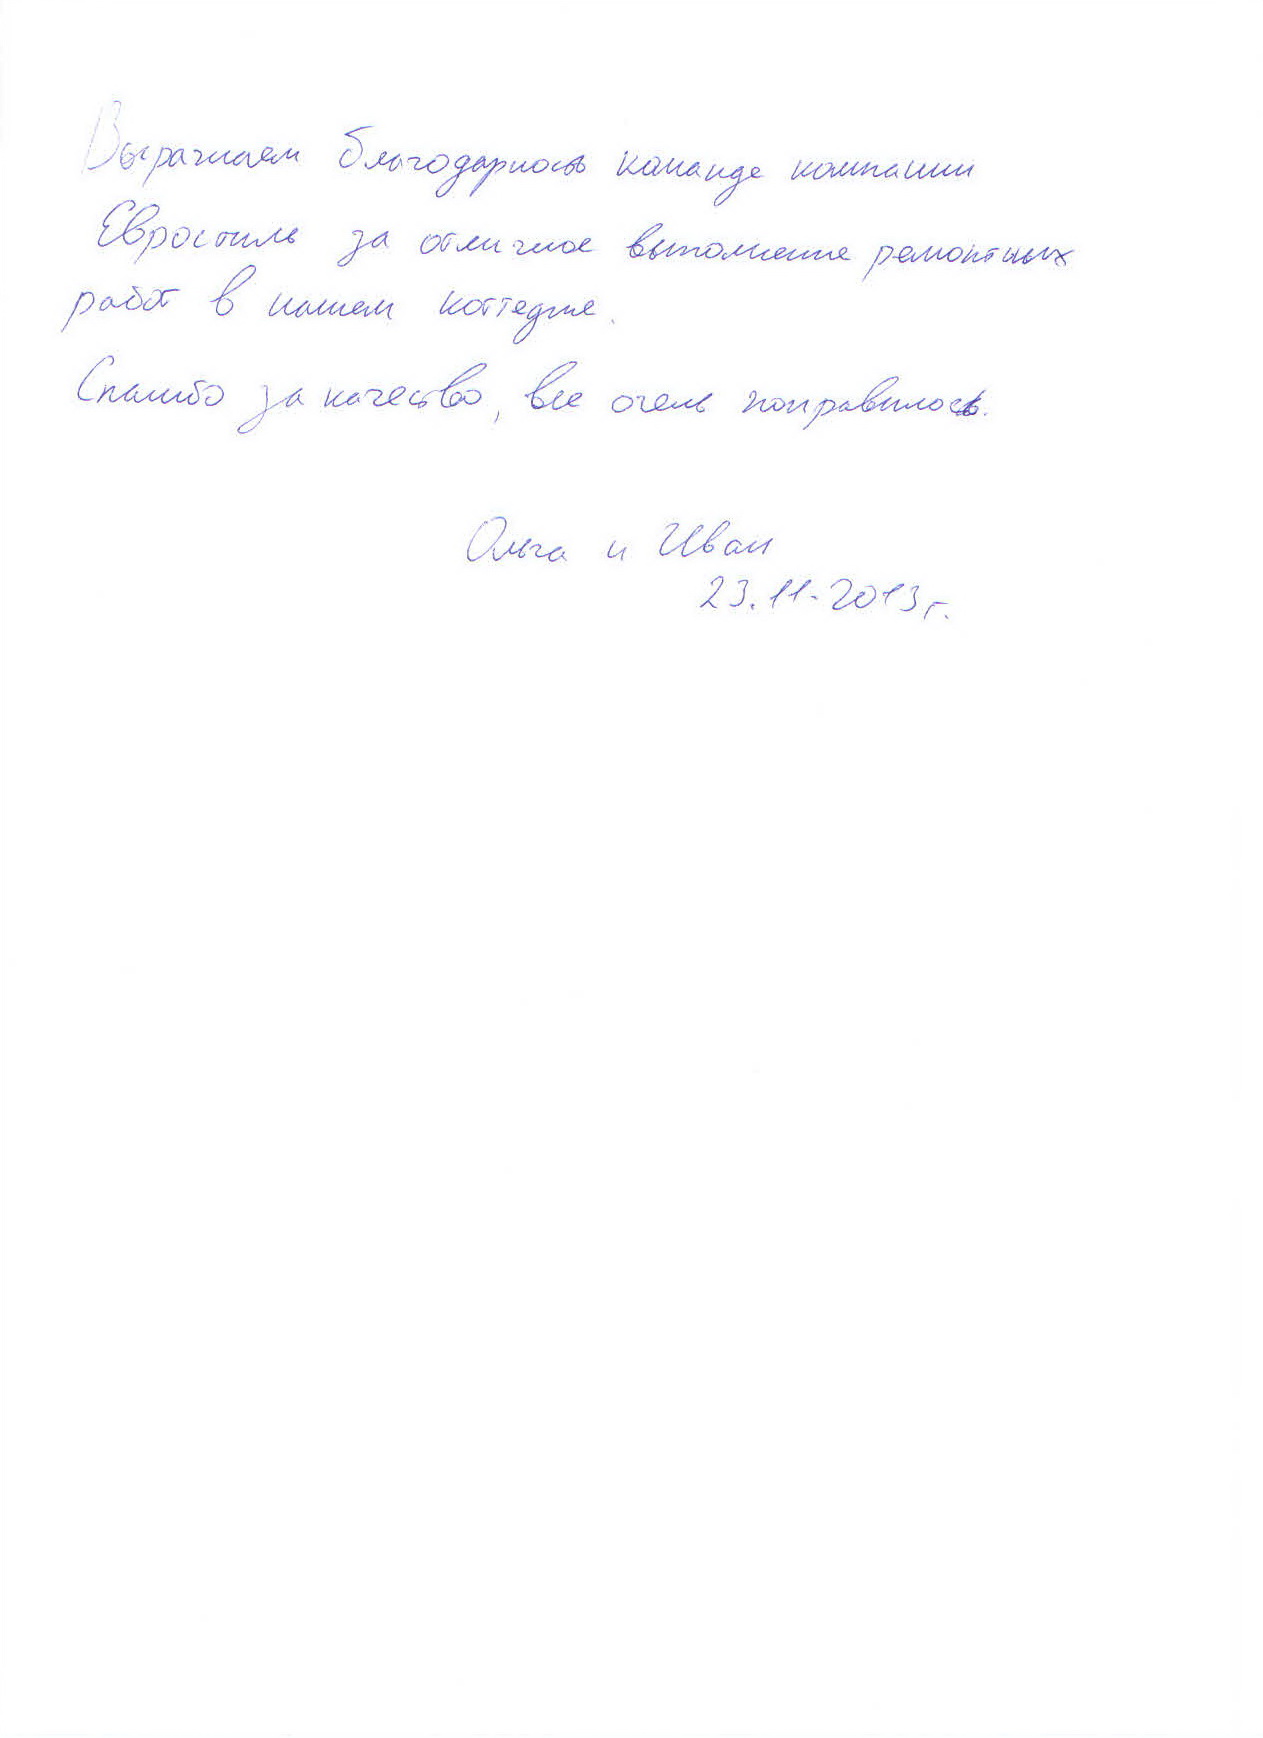 Выражаем благодарность команде компании
Евростиль за отличное выполнение ремонтных
работ в нашем коттедже.
Спасибо за качество, все очень понравилось.
Ольга и Иван
23.11.2013г.